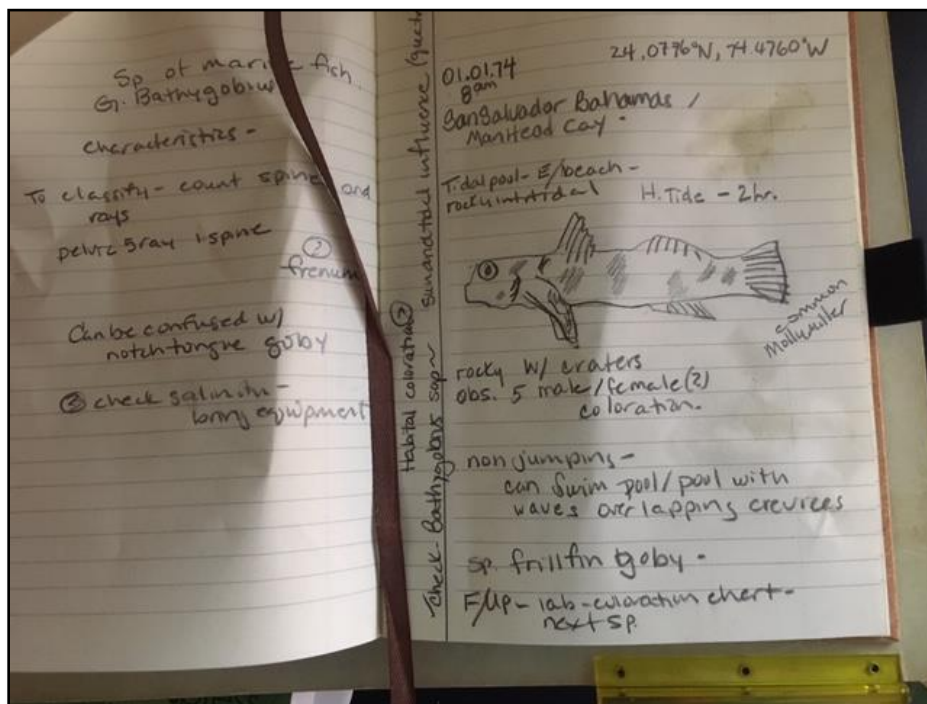 Sp of marine fish
G. Bathygobius
characteristics -
To classify - count spine and
rays
pelvic 5 ray 1 spine
?
frenum
Can be confused w/
notchtongue goby
check salinity -
bring equipment
Habital coloration ?
sun and tidal influence
✓check - Bathygobius
01.01.74
8am
24.0776°N, 74.4760°W
San Salvador Bahamas /
Man Head Cay -
Tidal pool - E/beach -
rocky
H. Tide - 2hr.
common
Mollymiller
rocky w/ craters
obs. 5 male/female (2)
coloration.
non jumping -
can swim pool/pool with
waves overlapping crevices
sp. frillfin goby -
F/up - lab - coloration chart -
next sp.